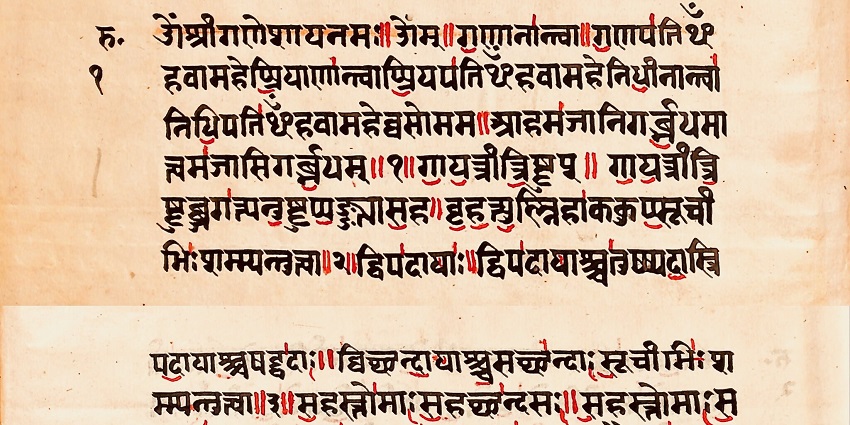 रु. ॐश्रीगणेशायनमः॥ॐम्॥गणानान्त्वा॥गणपतिᳪ
१ हवामहेप्प्रियाणान्त्वाप्प्रियपतिᳪहवामहेनिधीनान्त्वा
निधिपतिᳪहवामहेव्वसोमम॥आहमजानिगर्ब्भधमा
त्त्वमजासिगर्ब्भधम्॥१॥गायत्त्रीत्त्रिष्टुप्॥गायत्त्रीत्त्रि
ष्टुब्ब्जगत्त्यनुष्टुप्प्पङ्क्त्यासह॥बृहत्त्युष्ण्णिहाककुप्प्सूची
भिःशम्म्यन्तुत्त्वा॥२॥द्विपदायाः॥द्विपदायाश्च्चतुष्ष्पदास्त्रि
पदायाश्च्चषट्पदाः॥द्विच्छन्दायाश्च्चसच्छन्दाःसूचीभिःश
म्म्यन्तुत्त्वा॥३॥सहस्तोमाःसहच्छन्दसः॥सहस्तोमाःस